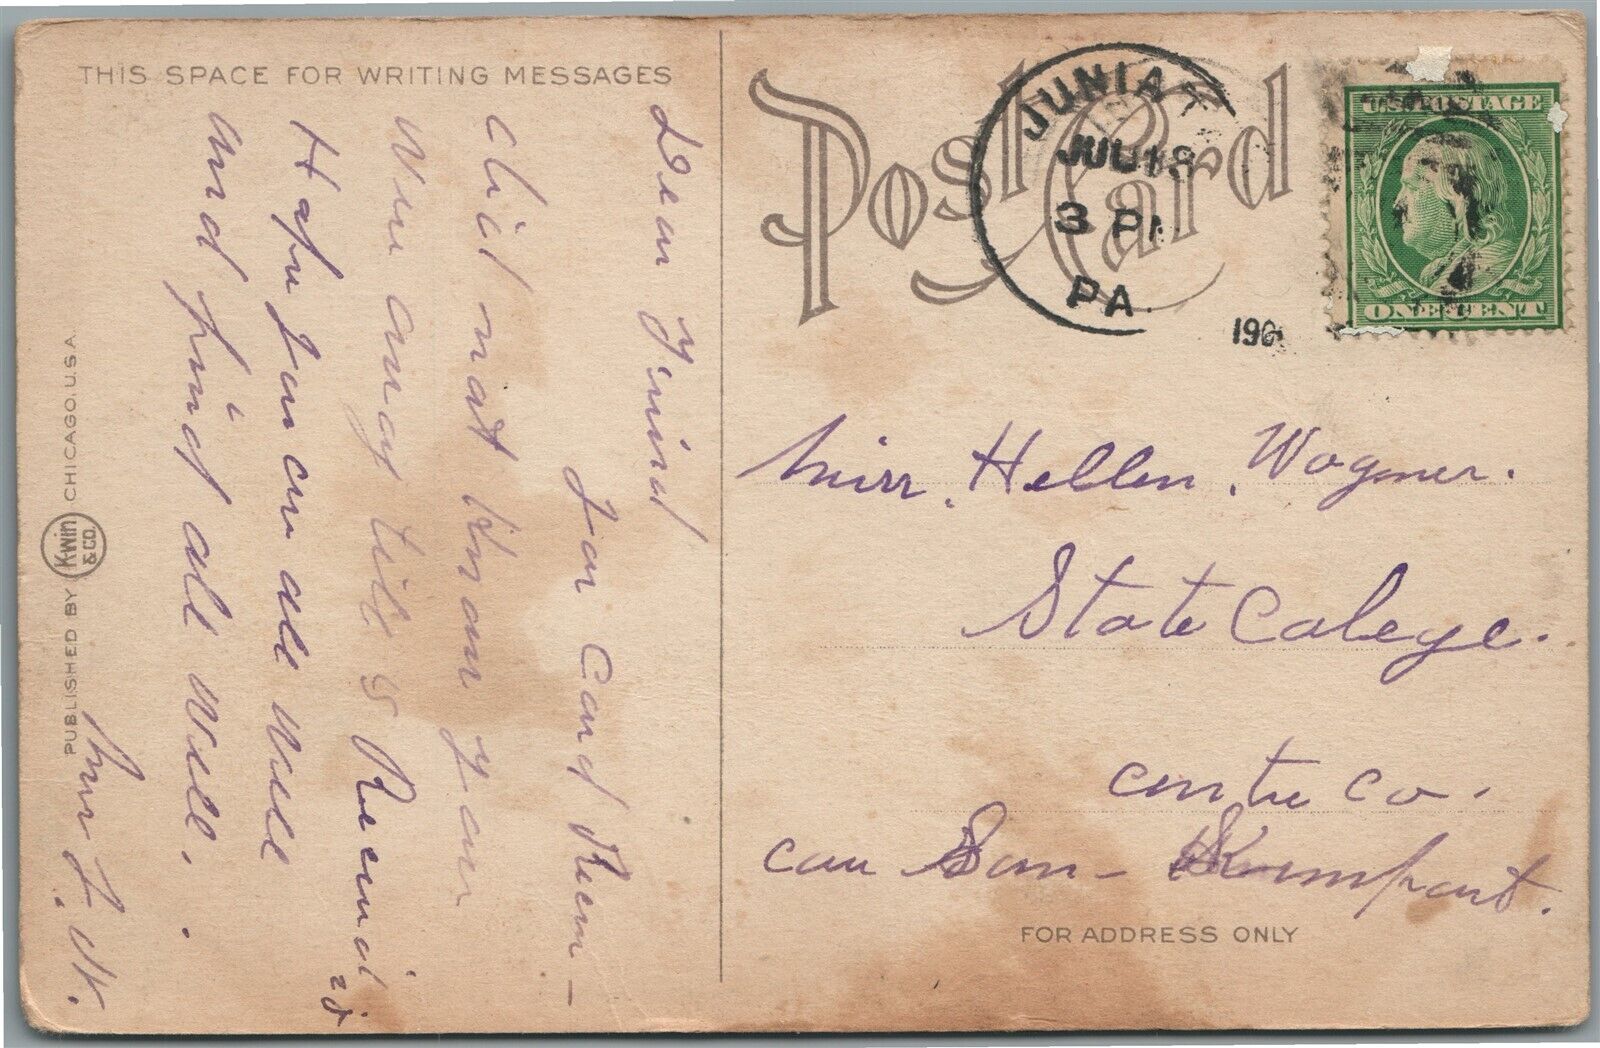 THIS SPACE FOR WRITING MESSAGES
Dear Frind
your card Reem-
did not know you
wer away till I Receivd
it
Hope you are all well
and find all well.
L. W.
PUBLISHED BY K-WIN & CO. CHICAGO. U.S.A.
Post Card
JUNIAT
JUL 18
3 P
PA.
190
U.S. POSTAGE
ONE CENT
Miss. Hellen. Wagner.
State Colege.
centre Co.
care Sam
FOR ADDRESS ONLY